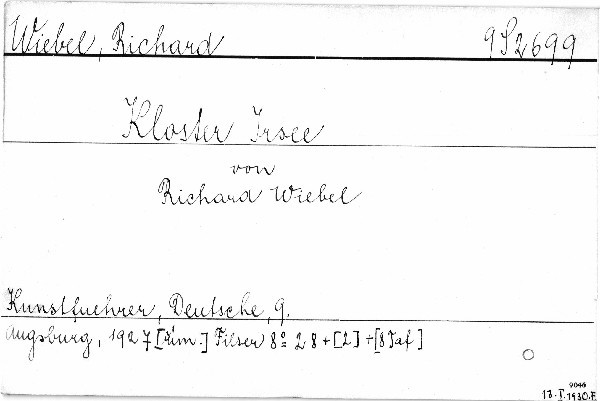 Wiebel, Richard 9S2699
Kloster Irsee
von
Richard Wiebel
Kunstfuehrer, Deutsche, 9.
Augsburg, 1927 [Röm.] Filser 8° 28+[2]+[8 Taf]
9046
13.I.1930.F.